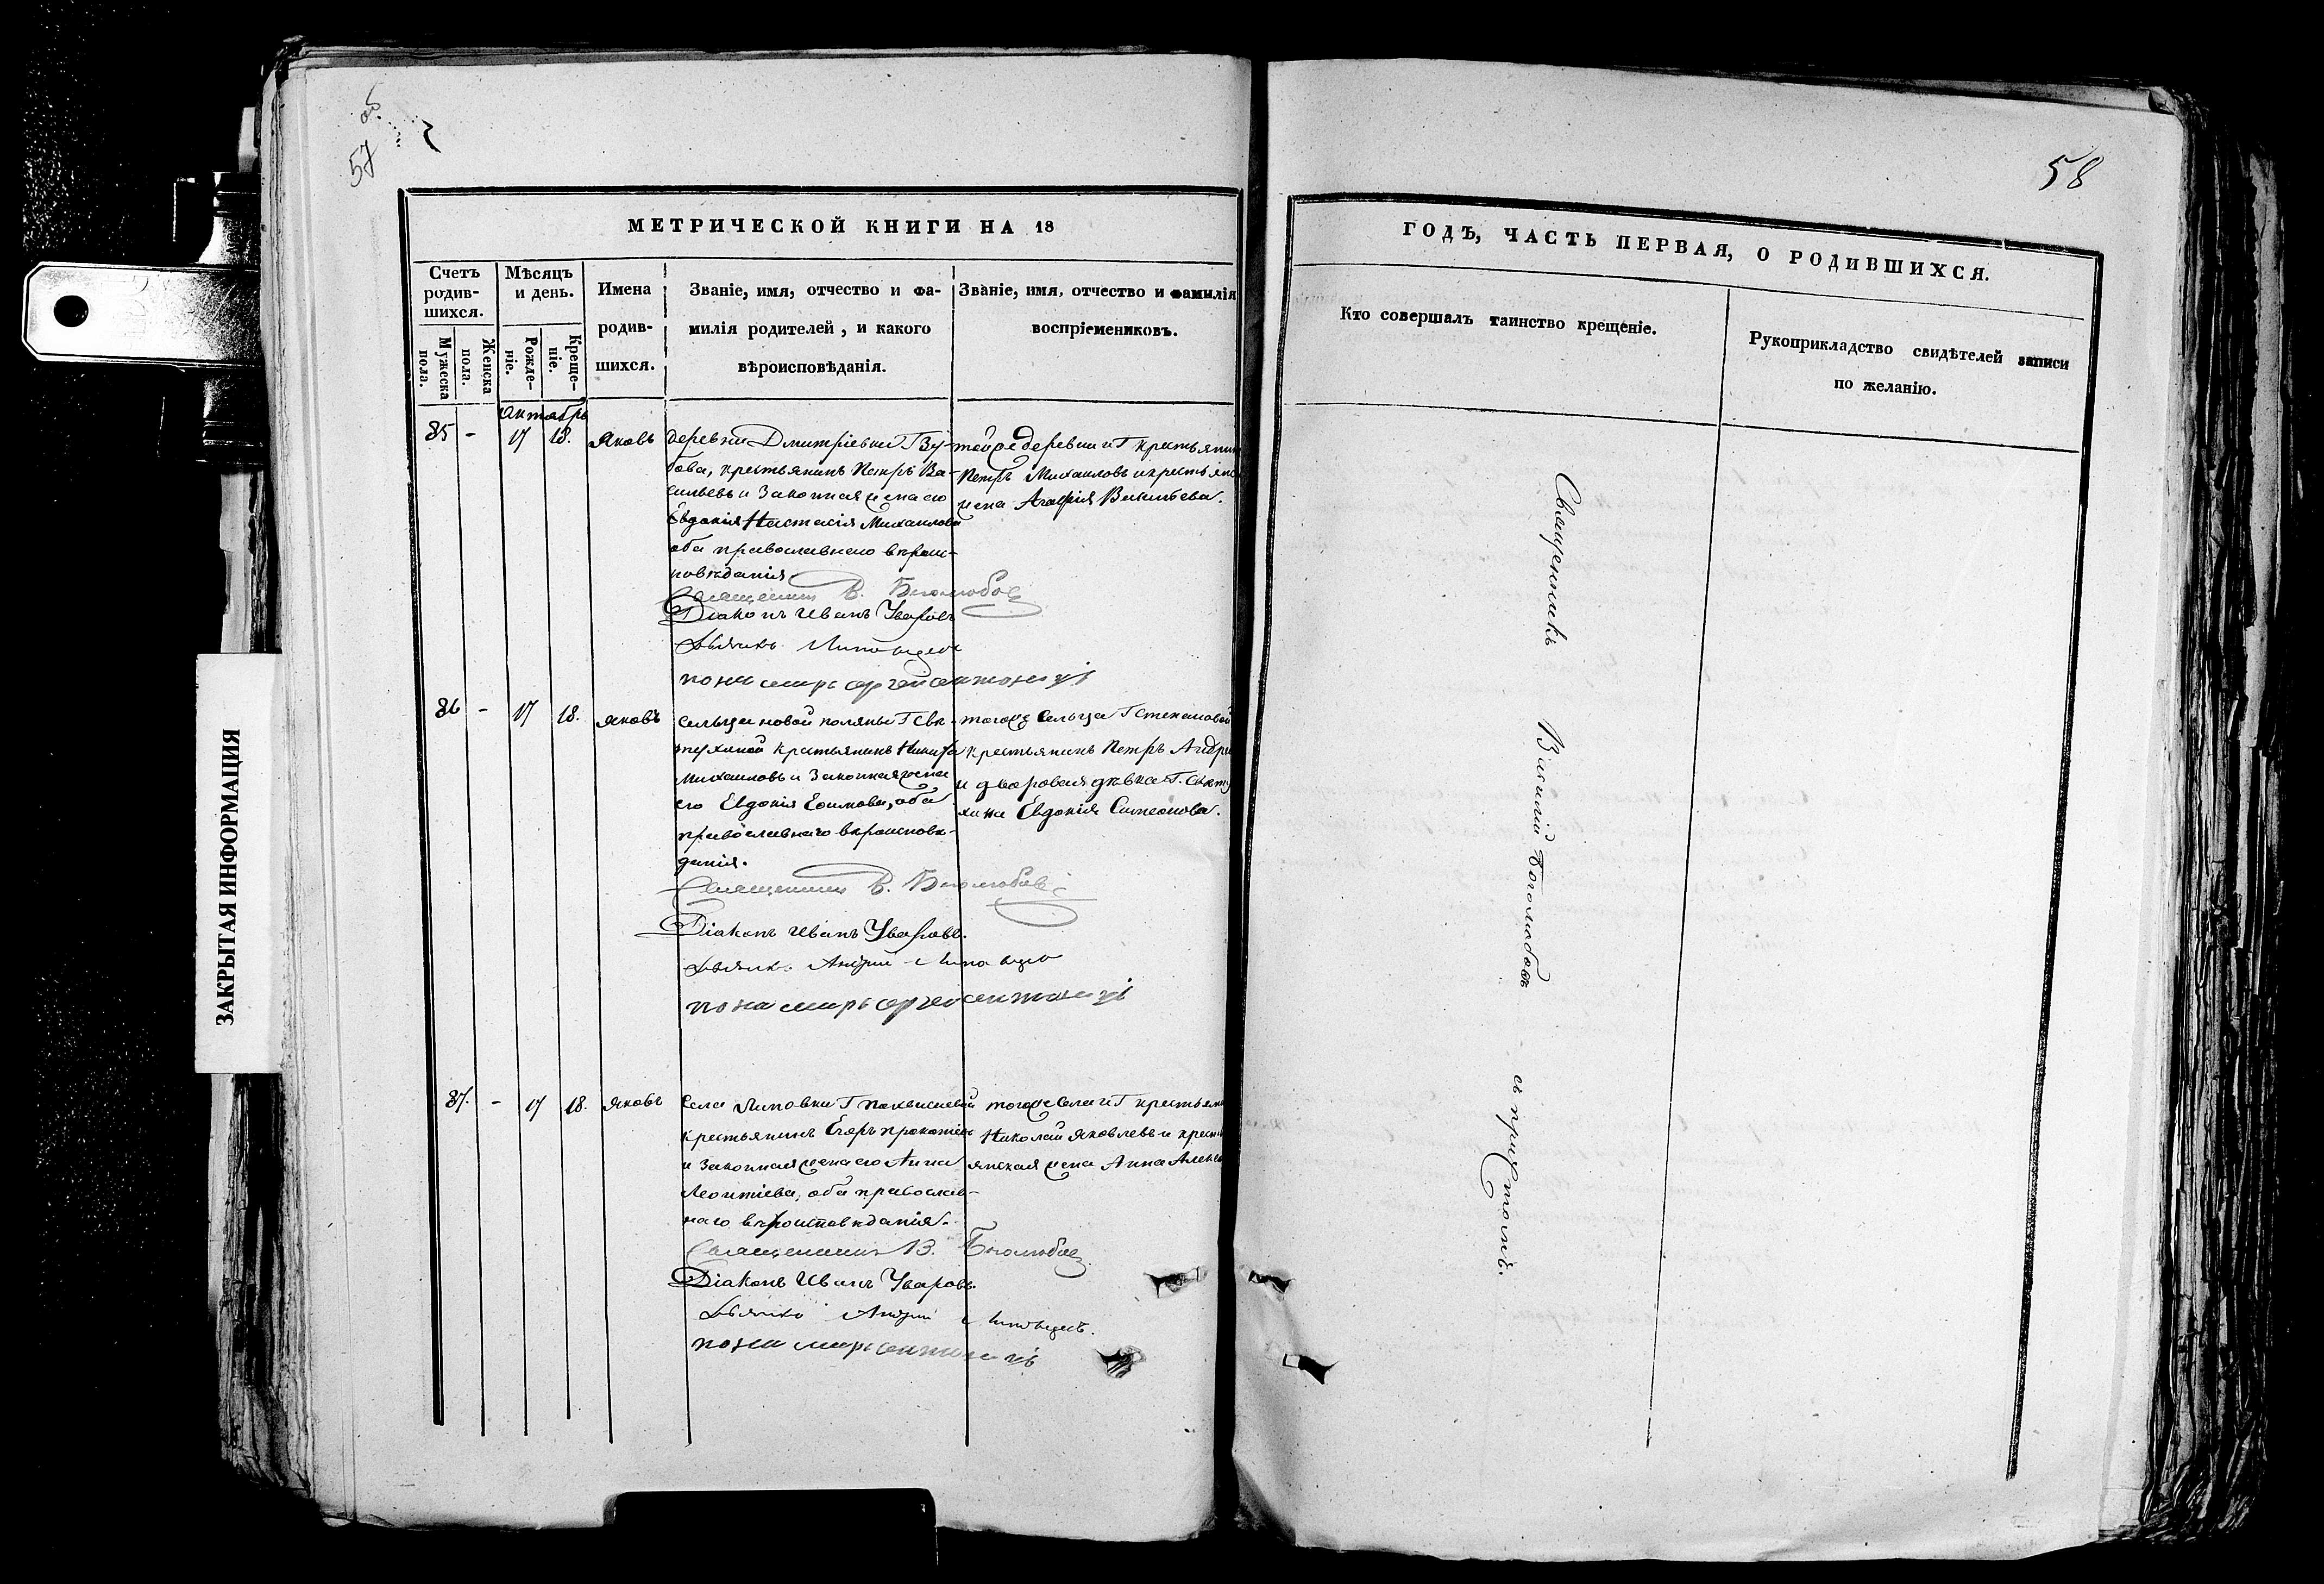 57
58
МЕТРИЧЕСКОЙ КНИГИ НА 18
Счетъ родив-шихся.
Мужеска пола.
Женска пола.
Мѣсяцъ и день.
Рожде-ніе.
Креще-ніе.
Имена
родив-
шихся.
Званіе, имя, отчество и фа-
милія родителей, и какого
вѣроисповѣданія.
Званіе, имя, отчество и фамилія
воспріемениковъ.
Октябрь
85 - 17 18. Яковъ
деревни Дмитріевки Г Зу-
бова, крестьянинъ Петръ Ва-
сильевъ и Законная жена его
Евдокія Настасія Михаилова
оба православнаго вѣрои-
повѣданія
Священникъ В. Боголюбовъ
Діаконъ Иванъ Уваровъ
Дьячикъ
понамарь
тойже деревни и Г крестьянин
Петръ Михаиловъ и крестьянс
жена Агафія
86 - 17 18. Яковъ
сельца новой поляны Г Свѣ-
тухиной крестьянинъ Никита
Михаиловъ и Законная жена
его Евдокія Ефимова, оба
православнаго вѣроисповѣ-
данія.
Священникъ В. Боголюбовъ
Діаконъ Иванъ Уваровъ.
Дьячикъ Андрей
понамарь
тогоже Сельца Г Степановой
крестьянинъ Петръ Андре
и дворовая дѣвка Г. Свѣту
хина Евдокія Симеонова.
87. - 17 18. Яковъ
Села Липовки Г
крестьянинъ Егоръ Прокофіевъ
и Законная жена его Анна
Леонтіева, оба православ-
наго вѣроисповѣданія.
Священникъ В. Боголюбовъ
Діаконъ Иванъ Уваровъ.
Дьячикъ Андрей
понамарь
тогоже Села и Г крестьяни
Николай Яковлевъ и кресть
янская жена Анна Алексѣ
ГОДЪ, ЧАСТЬ ПЕРВАЯ, О РОДИВШИХСЯ.
Кто совершалъ таинство крещеніе.
Рукоприкладство свидѣтелей записи
по желанію.
Священникъ Василій Боголюбовъ съ причтомъ.
ЗАКРЫТАЯ ИНФОРМАЦИЯ